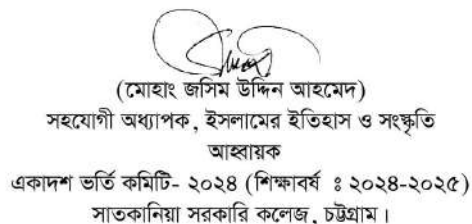 (মোহাং জসিম উদ্দিন আহমেদ)
সহযোগী অধ্যাপক, ইসলামের ইতিহাস ও সংস্কৃতি
আহ্বায়ক
একাদশ ভর্তি কমিটি- ২০২৪ (শিক্ষাবর্ষ ঃ ২০২৪-২০২৫)
সাতকানিয়া সরকারি কলেজ, চট্টগ্রাম।